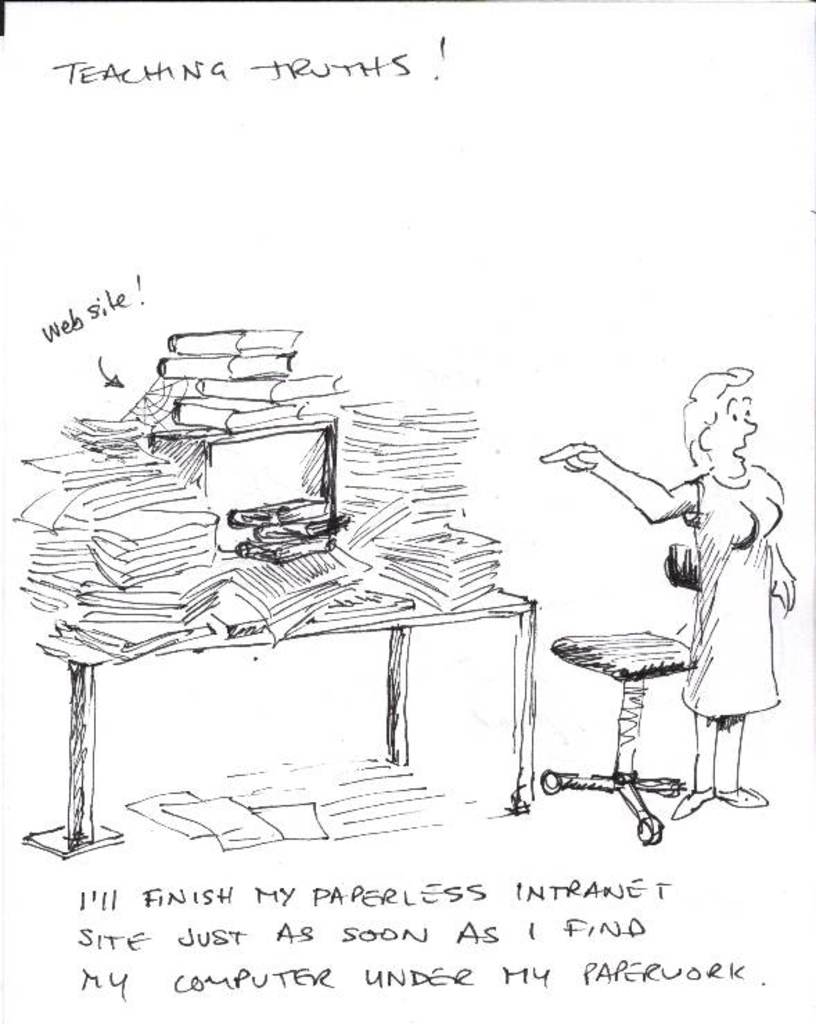 TEACHING TRUTHS!
web site!
I'll FINISH MY PAPERLESS INTRANET
SITE JUST AS SOON AS I FIND
MY COMPUTER UNDER MY PAPERWORK.